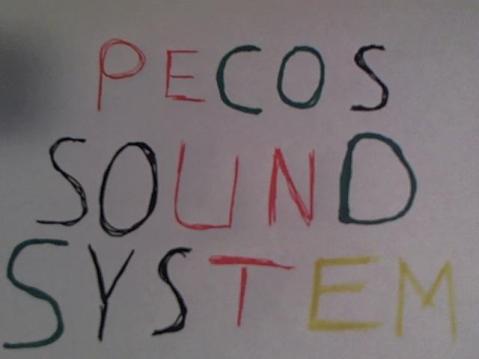 PECOS
SOUND
SYSTEM